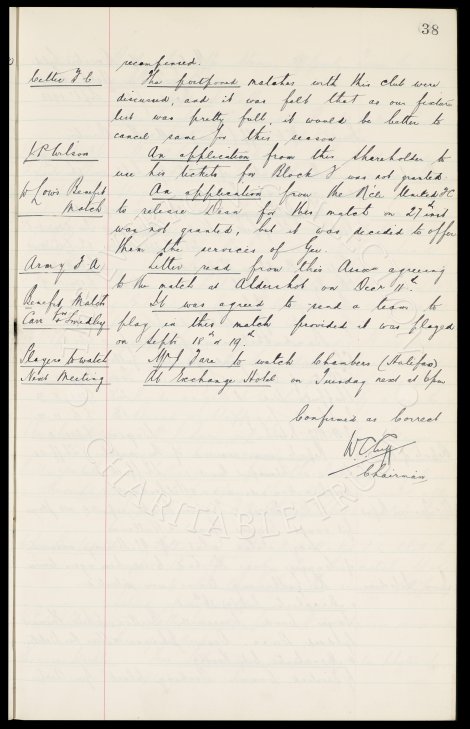 38
reconfirmed.
Celtic F C
The postponed matches with this club were
discussed, and it was felt that as our fixture
list was pretty full, it would be better to
cancel same for this season
J. P. Wilson
An application from this Shareholder to
use his tickets for Block J was not granted
W Low's Benefit
Match
An application from the N'cle United FC
to release Dean for this match on 27th inst
was not granted, but it was decided to offer
them the services of Gee
Army F A
Letter read from this Assocn agreeing
to the match at Aldershot on Decr 11th
Benefit Match
Carr & Smedley
It was agreed to send a team to
play in this match provided it was played
on Septr 18th or 19th
Players to watch
Mr J Fare to watch Chambers (Halifax)
Next Meeting
At Exchange Hotel on Tuesday next at 6pm
Confirmed as Correct
W.C. Cuff
Chairman
CHARITABLE TRUST